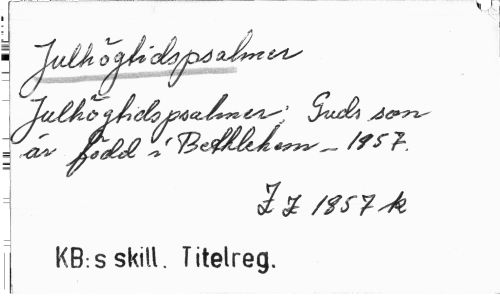 Julhögtidspsalmer
Julhögtidspsalmer; Guds son
är född i Bethlehem – 1857.
F F 1857 k
KB:s skill. Titelreg.